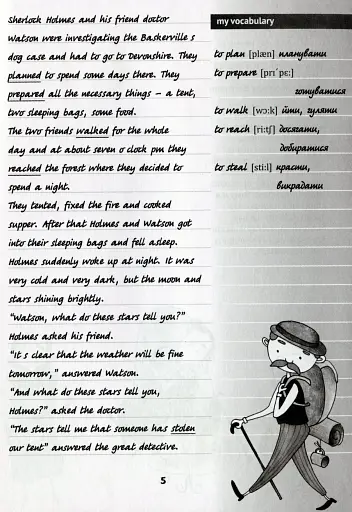 Sherlock Holmes and his friend doctor
Watson were investigating the Baskerville s
dog case and had to go to Devonshire. They
planned to spend some days there. They
prepared all the necessary things – a tent,
two sleeping bags, some food.
The two friends walked for the whole
day and at about seven o clock pm they
reached the forest where they decided to
spend a night.
They tented, fixed the fire and cooked
supper. After that Holmes and Watson got
into their sleeping bags and fell asleep.
Holmes suddenly woke up at night. It was
very cold and very dark, but the moon and
stars shining brightly.
"Watson, what do these stars tell you?"
Holmes asked his friend.
"It s clear that the weather will be fine
tomorrow," answered Watson.
"And what do these stars tell you,
Holmes?" asked the doctor.
"The stars tell me that someone has stolen
our tent" answered the great detective.
my vocabulary
to plan [plæn] планувати
to prepare [prɪ´pɛ:]
готуватися
to walk [wɔ:k] йти, гуляти
to reach [ri:tʃ] досягати,
добиратися
to steal [sti:l] красти,
викрадати
5